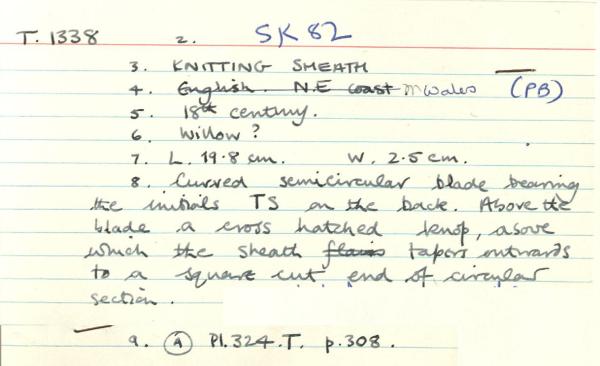 T. 1338 2. SK 82
3. KNITTING SHEATH
4. English. N.E coast N Wales (PB)
5. 18th century.
6. Willow ?
7. L. 19.8 cm. W. 2.5 cm.
8. Curved semicircular blade bearing
the initials TS on the back. Above the
blade a cross hatched knop, above
which the sheath tapers outwards
to a square cut end of circular
section.
9. A Pl. 324. T. p. 308.